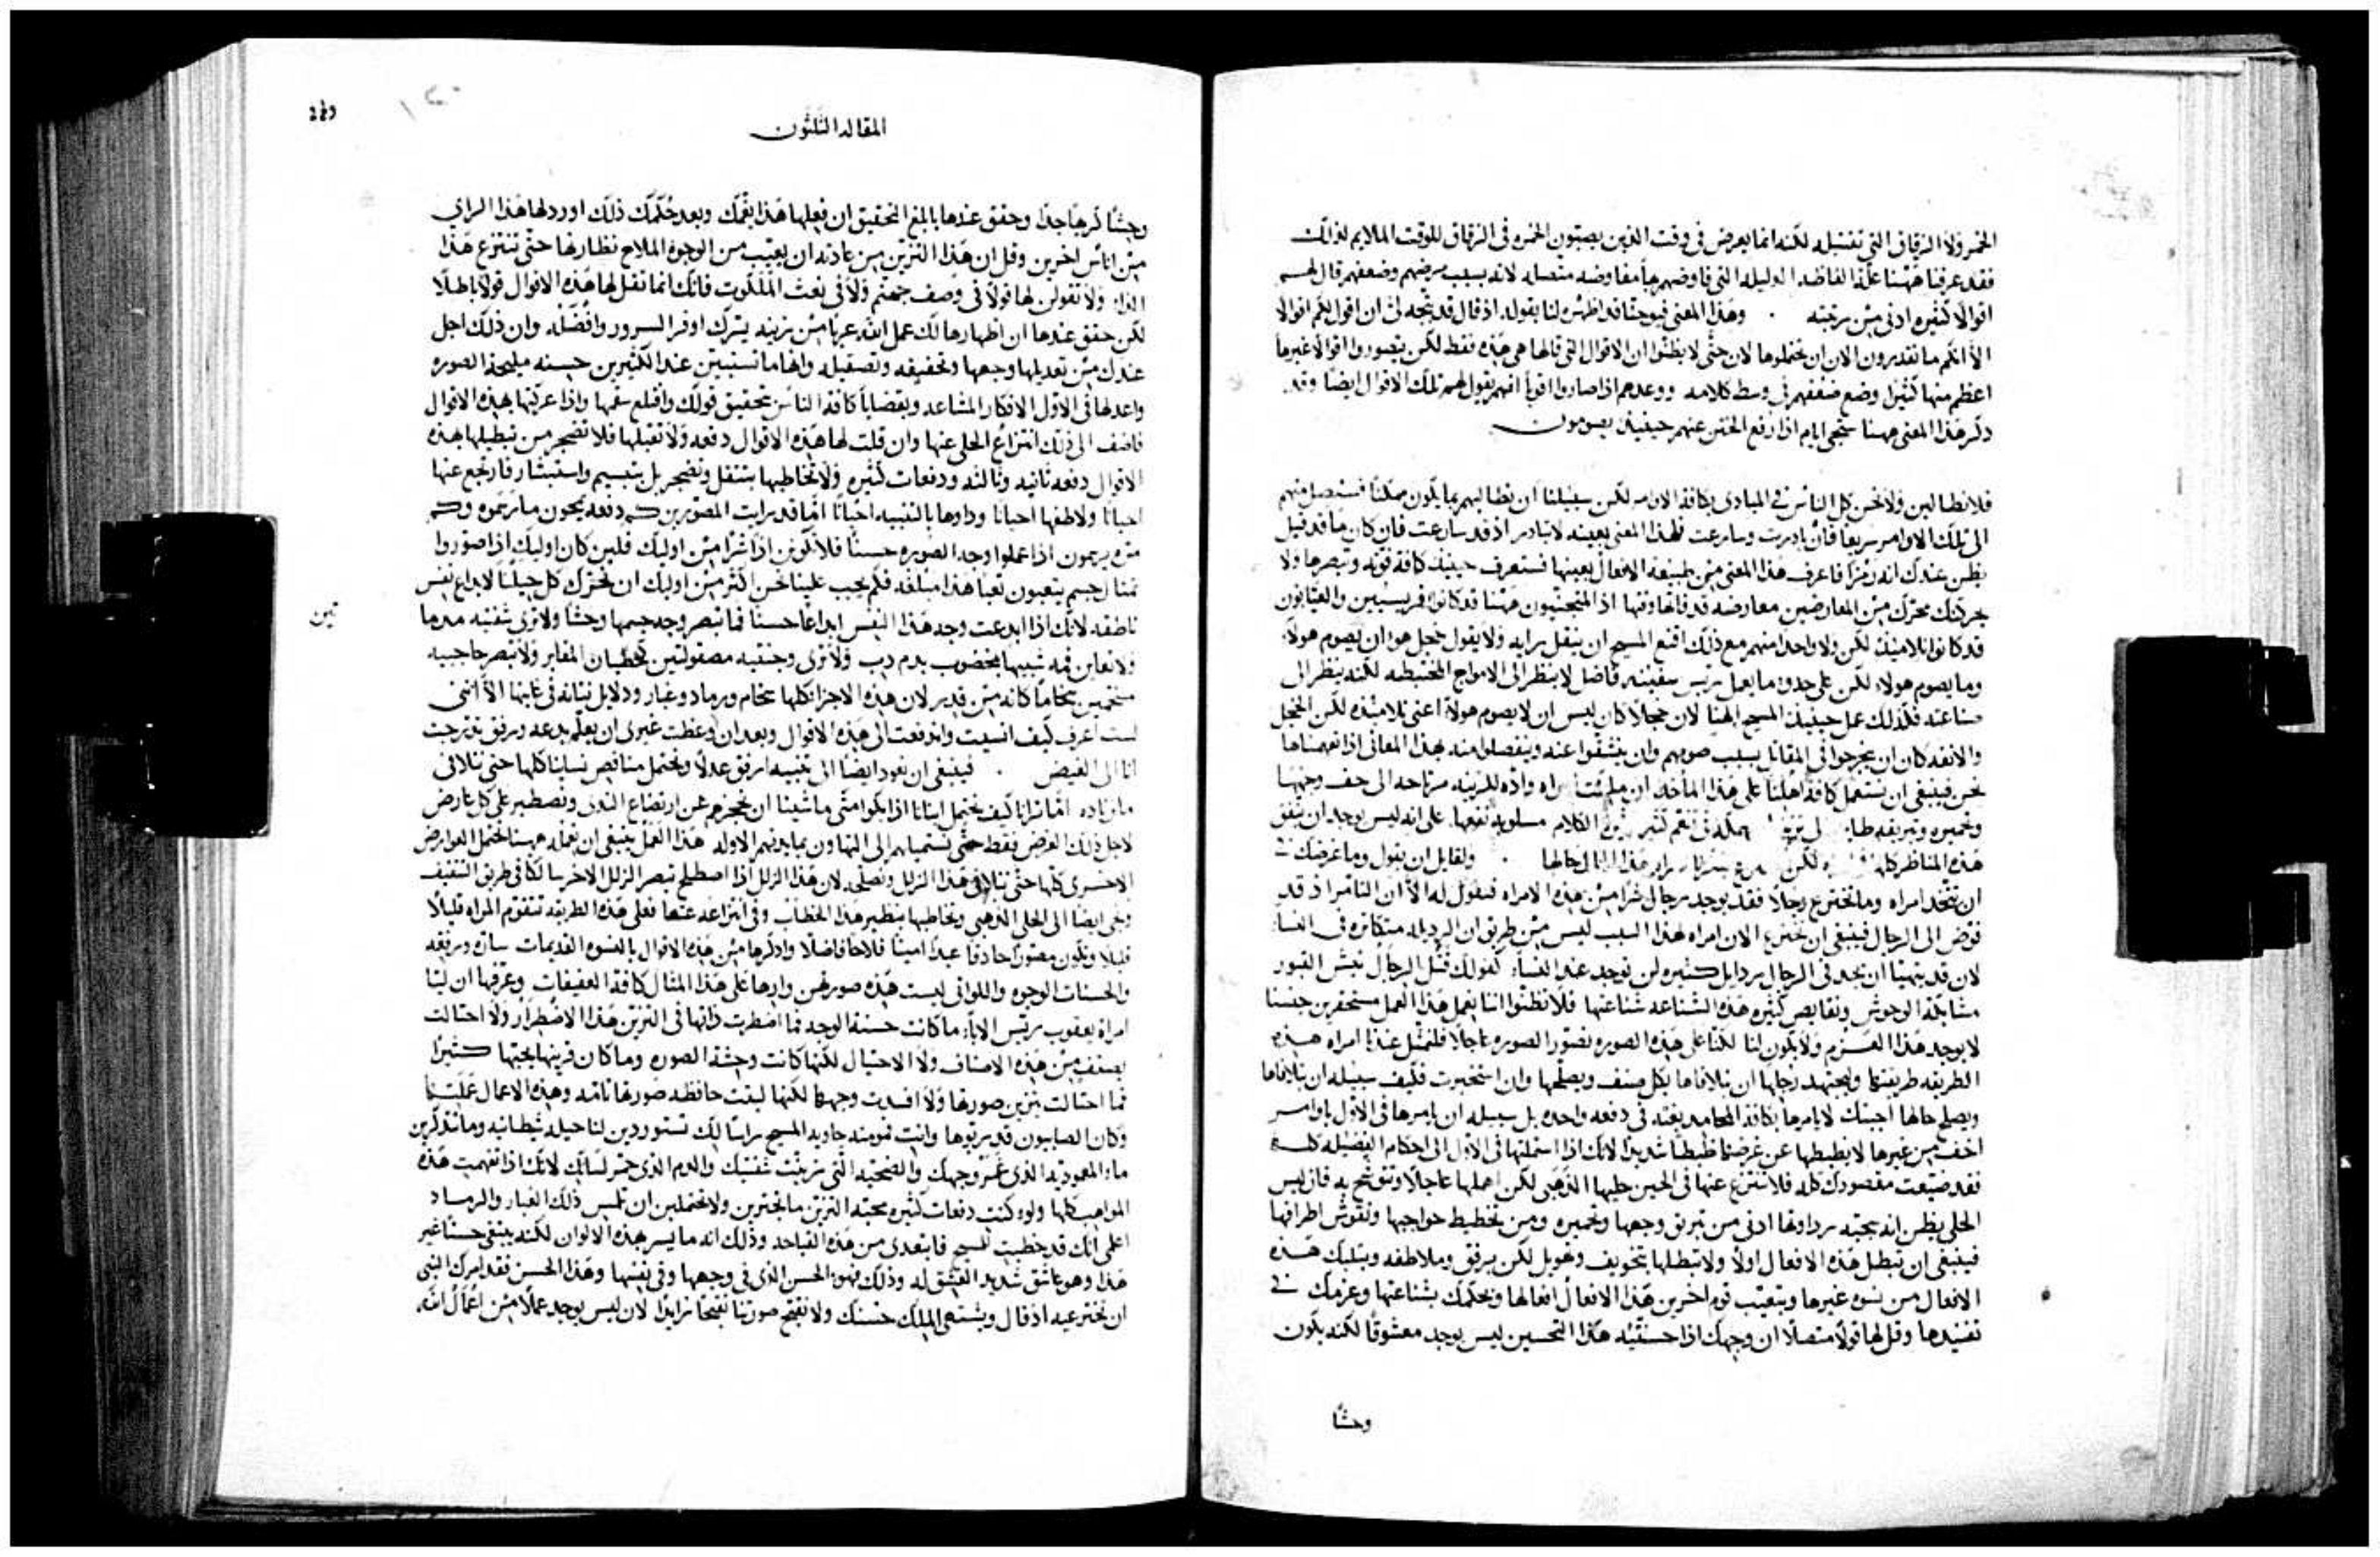 الخمر ولا الزقاق التي تقتبله لكنه انما يعرض في وقت الذين يصبّون الخمره في الزقاق للوقت الملايم لذلك
فقد عرفنا ههنا علة الفاظه الذليله التي فاوضهم بها مفاوضه متصله لانه بسبب مرضهم وضعفهم قال لهم
اقوالاً كثيره ادنى من رتبته . وهذا المعنى فيوحنا قد اظهره لنا بقوله اذ قال قد يتجه لي ان اقول لكم اقوالا
الا انكم ما تقدرون الان ان تحتملوها لان حتى لا يظنوا ان الاقوال التي قالها هي هذه فقط لكن يتصوروا اقوالا غيرها
اعظم منها كثيرا وضع ضعفهم في وسط كلامه ووعدهم اذا صاروا اقويا انه يقول لهم تلك الاقوال ايضا وقد
ذكر هذا المعنى ههنا ستجي ايام اذا رفع الختن عنهم حينيذ يصومون
فلا نطالبن ولا نحن كل الناس في المبادي بكافة الاوامر لكن سبيلنا ان نطالبهم بما يكون ممكناً فسنصل منهم
الى تلك الاوامر سريعا فان بادرت وسارعت فلهذا المعنى بعينه لا تبادر اذ قد سارعت فان كان ما قد قيل
يظن عندك انه رمزا فاعرف هذا المعنى من طبيعة الافعال بعينها فستعرف حينيذ كافة قوته وتبصرها ولا
يحركنك محرك من المعارضين معارضه قد فاتها وقتها اذ المتجنيون ههنا قد كانوا فريسيين والعيّابون
قد كانوا تلاميذ لكن ولا واحدا منهم مع ذلك اقنع المسيح ان ينقل رايه ولا يقول خجل هو ان يصوم هولاء
وما يصوم هولاء لكن على حذو ما يعمل ريس سفينه فاضل لا ينظر الى الامواج المختبطه لكنه ينظر الى
صناعته فكذلك عمل حينيذ المسيح الهنا لان خجلا كان ليس ان لا يصوم هولاء اعني تلاميذه لكن الخجل
والانفه كان ان يخرجوا في المقاتل بسبب صومهم وان ينشقوا عنه وينفصلوا منه فهذا المعاني اذا تفهمناها
نحن فينبغي ان نستعمل كافة اهلنا على هذا الماخذ ان ملكت امراه واده للزينه مرتاحه الى حف وجهها
وتحميره وتبريقه
هذه المناظر كلها لكن هذا المال حالها . ولقايل ان يقول وما غرضك
ان تتخذ امراه وما تخترع رجلا فقد يوجد رجال شرا من هذه الامراه فنقول له الا ان التامر اذ قد
فوّض الى الرجال فينبغي ان نخترع الان امراه لهذا السبب ليس من طريق ان الرذيله متكاثره في النسا
لان قد يتهيا ان يجد في الرجال رذايل كثيره لن توجد عند النساء كقولك قتل الرجال نبش القبور
مشابكة الوحوش ونقايص كثيره هذه الشناعه شناعتها فلا تظنوا اننا نعمل هذا العمل مستحقرين جنسنا
لا يوجد هذا العزم ولا يكون لنا لكننا على هذه الصوره نصوّر الصوره عاجلا فلتمثل عندنا امراه هذه
الطريقه طريقتها وليجتهد رجلها ان يتلافاها بكل صنف ويصلحها وان استخبرت فكيف سبيله ان يتلافاها
ويصلح حالها اجبتك لا يامرها بكافة المحامد بغته في دفعه واحده بل سبيله ان يامرها في الاول باوامر
اخف من غيرها لا يضبطها عن غرضها ضبطا شديدا لانك اذا استملتها في الاول الى احكام الفضيله كلها
فقد ضيّعت مقصودك كله فلا تنتزع عنها في الحين حليها الذهبي لكن اهملها عاجلا وتتوشح به فان ليس
الحلي يظن انه محبته رداوتها ادنى من تبريق وجهها وتحميره ومن تخطيط حواجبها ونقوش اطرافها
فينبغي ان تبطل هذه الافعال اولا ولا تبطلها بتخويف وتهويل لكن برفق وملاطفه وبثلبك هذه
الافعال من نسوه غيرها وبتعيّب قوم اخرين هذا الافعال افعالها وبحكمك بشناعتها وعزمك في
تفنيدها وقل لها قولا متصلا ان وجهك اذا حسنتيه هذا التحسين ليس يوجد معشوقا لكنه يكون
وحشًا
المقاله الثلثون
وحشًا كرهًا جدًا وحقق عندها بابلغ التحقيق ان فعلها هذا يغمك وبعد حكمك ذلك اورد لها هذا الراي
من اناس اخرين وقل ان هذا التزين من عادته ان يعيّب من الوجوه الملاح نظارتها حتى تنتزع هذا
الداء ولا تقولن لها قولا في وصف جهنم ولا في نعت الملكوت فانك انما تقل لها هذه الاقوال قولا باطلا
لكن حقق عندها ان اظهارها لك عمل الله عريا من زينه يسرك اوفر السرور وافضله وان ذلك اجل
عندك من تعديلها وجهها وتحفيفه وتصقيله وانها ما تستبين عند الكثيرين حسنه مليحة الصوره
واعدلها في الاول الافكار المشاعه وبقضايا كافة الناس تحقيق قولك واقلع سقمها واذا عركتها بهذه الاقوال
فاضف الى ذلك انتزاع الحلي عنها وان قلت لها هذه الاقوال دفعه ولا تقبلها فلا تضجر من تبطيلها هذه
الاقوال دفعه ثانيه وثالثه ودفعات كثيره ولا تخاطبها بتثقل وتضجر بل بتبسيم واستبشار فارجع عنها
احيانًا ولاطفها احيانا وداوها بالتنبيه احيانًا اما قد رايت المصورين كم دفعه يمحون ما رسموه وكم
مره يرسمون اذا عملوا وجه الصوره حسنًا فلا تكونن اذا شرا من اوليك فلين كان اوليك اذا صوّروا
تمثال جسم يتعبون تعبا هذا مبلغه فكم يجب علينا نحن اكثر من اوليك ان نحرك كل حيلتنا لابداع نفس
ناطقه لانك اذا ابدعت وجه هذا النفس ابداعًا حسنا فما تبصر وجه جسمها وحشًا ولا ترى شفتيه مدرما
ولا تعاين فمه شبيها بمخضوب بدم دب ولا ترى وجنتيه مصقولتين كحيطان المقابر ولا تبصر حاجبيه
مسخمين بسخامًا كانه من قدر لان هذه الاجزا كلها سخام ورماد وغبار ودلايل نتانه في غايتها الا انني
لست اعرف كيف انسبت واندفعت الى هذه الاقوال وبعد ان وعظت غيري ان يعلّم بدعه ورفق تدرجت
انا الى الغيض . فينبغي ان نعود ايضا الى تنبيه ارفق عدلا ونحتمل مناقص نساينا كلها حتى نتلافى
ما نريده اما ترانا كيف نحتمل ابنانا اذا بكوا متى ما شينا ان نحجزهم عن ارتضاع الثدي ونصطبر على كل عارض
لاجل ذلك الغرض فقط حتى نستميلهم الى التهاون بمايدتهم الاوله هذا العمل ينبغي ان نعمله ههنا نحتمل العوارض
الاخرى كلها حتى نتلافى هذا الزلل ونصلحه لان هذا الزلل اذا اصطلح تبصر الزلل الاخر سالكا في طريق التثقيف
وتجي ايضا الى الحلي الذهبي وتخاطبها بنظير هذا الخطاب وفي انتزاعه عنها فعلى هذه الطريقه تتقوّم المراه قليلا
قليلا وتكون مصوّرا حاذقا عبدا امينا فلاحا فاضلا واذكرها من هذه الاقوال بالنسوه القديمات ساره ورفقه
والحسنات الوجوه واللواتي ليست هذه صورتهن وارها على هذا المثال كافة العفيفات وعرفها ان ليّا
امراة يعقوب ريس الاباء ما كانت حسنة الوجه فما اضطرت ذاتها في التزين هذا الاضطرار ولا احتالت
بصنف من هذه الاصناف ولا الاحتيال لكنها كانت وحشة الصوره وما كان قرينها يحبها كثيرا
فما احتالت بتزيين صورتها ولا افسدت وجهها لكنها لبثت حافظه صورتها تامه وهذه الاعمال عملتها
وكان الصابيون قد ربوها وانت المومنه جاويه المسيح راسًا لك تستوردين لنا حيله شيطانيه وما تتذكرين
ماء المعموديه الذي غمر وجهك والضحيه التي زينت شفتيك والدم الذي حمّر لسانك لانك اذا تفهمت هذه
المواهب كلها ولو كنت دفعات كثيره محبة التزين ما تجترين ولا تحتملين ان تلمس ذلك الغبار والرماد
اعلمي انك قد خطبت للمسيح فابتعدي من هذه القباحه وذلك انه ما يسر بهذه الالوان لكنه يبتغي حسنًا غير
هذا وهو عاشق شديد العشق له وذلك فهو الحسن الذي في وجهها وفي نفسها وهذا الحسن فقد امرك النبي
ان تخترعيه اذ قال ويشتهي الملك حسنك ولا نقبّح صورتنا تقبيحًا زايدًا لان ليس يوجد عملا من اعمال الله